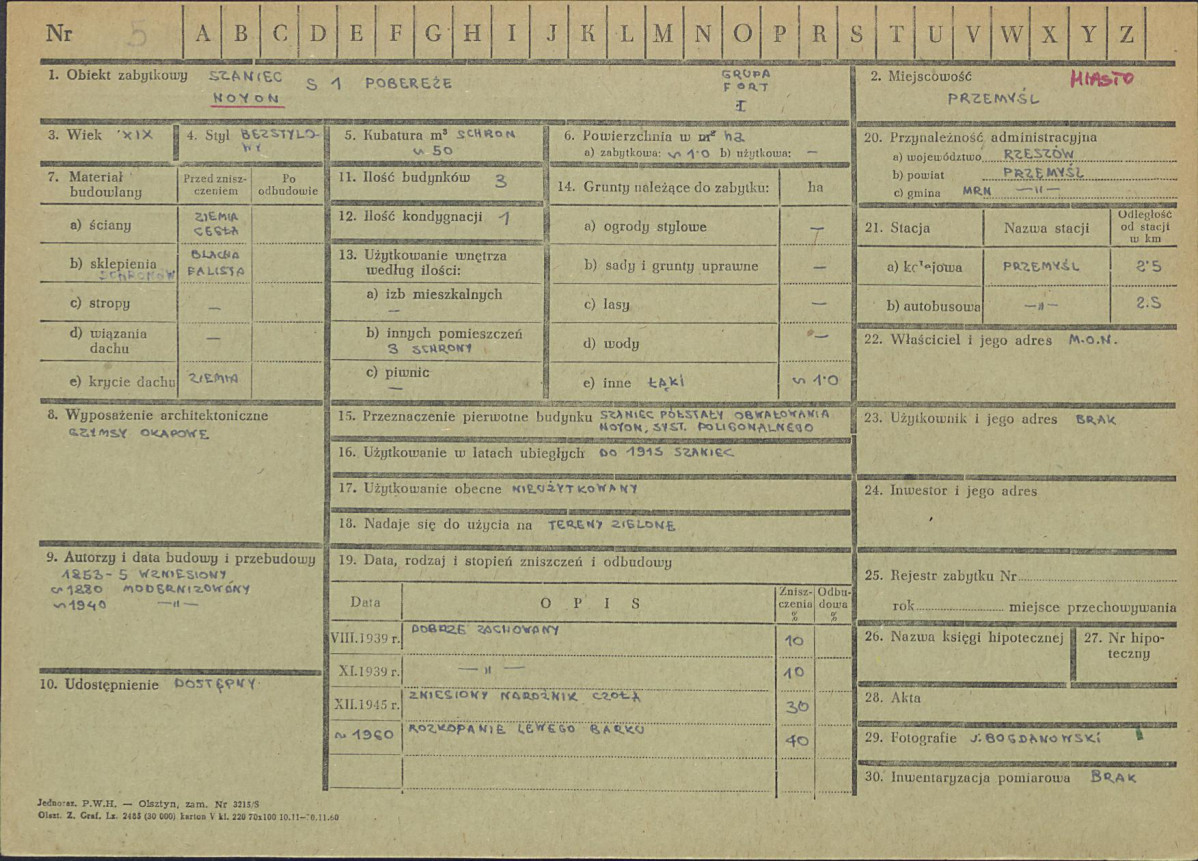 Nr 5 A B C D E F G H I J K L M N O P R S T U V W X Y Z
1. Obiekt zabytkowy SZANIEC S 1 POBEREŻE GRUPA
NOYON FORT
I
2. Miejscowość MIASTO
PRZEMYŚL
3. Wiek XIX
4. Styl BEZSTYLO-
WY
5. Kubatura m³ SCHRON
∾ 50
6. Powierzchnia w m² ha
a) zabytkowa: ∾ 1·0 b) użytkowa: —
7. Materiał budowlany
Przed znisz-
czeniem
Po
odbudowie
a) ściany ZIEMIA
CEGŁA
b) sklepienia BLACHA
SCHRONÓW FALISTA
c) stropy —
d) wiązania
dachu —
e) krycie dachu ZIEMIA
8. Wyposażenie architektoniczne
GZYMSY OKAPOWE
9. Autorzy i data budowy i przebudowy
1853-5 WZNIESIONY
∾ 1880 MODERNIZOWANY
∾ 1940 —"—
10. Udostępnienie DOSTĘPNY
11. Ilość budynków 3
12. Ilość kondygnacji 1
13. Użytkowanie wnętrza
według ilości:
a) izb mieszkalnych
—
b) innych pomieszczeń
3 SCHRONY
c) piwnic
—
14. Grunty należące do zabytku: ha
a) ogrody stylowe —
b) sady i grunty uprawne —
c) lasy —
d) wody —
e) inne ŁĄKI ∾ 1·0
15. Przeznaczenie pierwotne budynku SZANIEC PÓŁSTAŁY OBWAŁOWANIA
NOYON, SYST. POLIGONALNEGO
16. Użytkowanie w latach ubiegłych DO 1915 SZANIEC
17. Użytkowanie obecne NIEUŻYTKOWANY
18. Nadaje się do użycia na TERENY ZIELONE
19. Data, rodzaj i stopień zniszczeń i odbudowy
Data
O P I S
Znisz-
czenia
%
Odbu-
dowa
%
VIII.1939 r. DOBRZE ZACHOWANY 10
XI.1939 r. —"— 10
XII.1945 r. ZNIESIONY NAROŻNIK CZOŁA 30
∾ 1960 ROZKOPANIE LEWEGO BARKU 40
20. Przynależność administracyjna
a) województwo RZESZÓW
b) powiat PRZEMYŚL
c) gmina MRN —"—
21. Stacja
Nazwa stacji
Odległość
od stacji
w km
a) kolejowa PRZEMYŚL 2·5
b) autobusowa —"— 2.5
22. Właściciel i jego adres M.O.N.
23. Użytkownik i jego adres BRAK
24. Inwestor i jego adres
25. Rejestr zabytku Nr
rok miejsce przechowywania
26. Nazwa księgi hipotecznej
27. Nr hipo-
teczny
28. Akta
29. Fotografie J. BOGDANOWSKI
30. Inwentaryzacja pomiarowa BRAK
Jednoraz. P.W.H. — Olsztyn, zam. Nr 3215/S
Olszt. Z. Graf. Lz. 2468 (30 000) karton V kl. 220 70x100 10.11—0.11.60